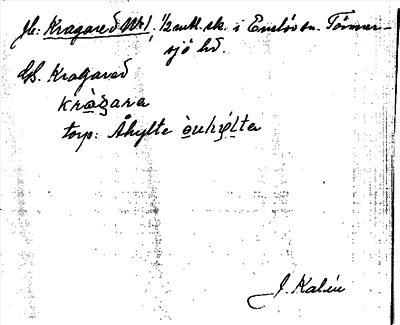 Jb: Kragared Nr 1, 1/2 mtl. sk. i Enslövs sn. Tönner-
sjö hd.
Kragared
kràgara
torp: Åhylte
J. Kalén